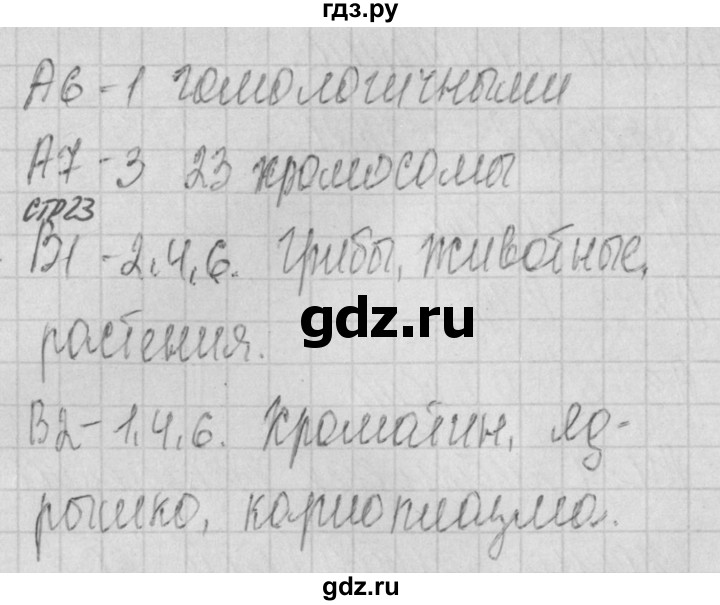 гдз.ру
А6-1 гомологичными
А7-3 23 хромосомы
стр23
В1-2,4,6. Грибы, животные,
растения.
gdz.ru
В2-1,4,6. Хроматин, яд-
рышко, кариоплазма.
gdz.ru